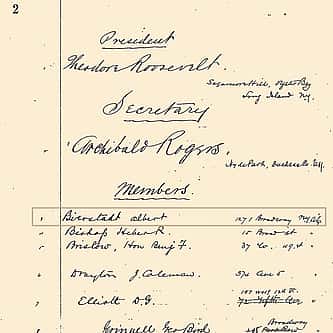 2
President
Theodore Roosevelt.
Sagamore Hill, Oyster Bay
Long Island N.Y.
Secretary
Archibald Rogers.
Hyde Park, Dutchess
Members.
Bierstadt Albert 1271 Broadway
Bishop Heber R. 15 Broad St
Bristow, Hon Benj F.
Drayton J. Coleman.
Elliott D.G.
Grinnell Geo Bird Broadway